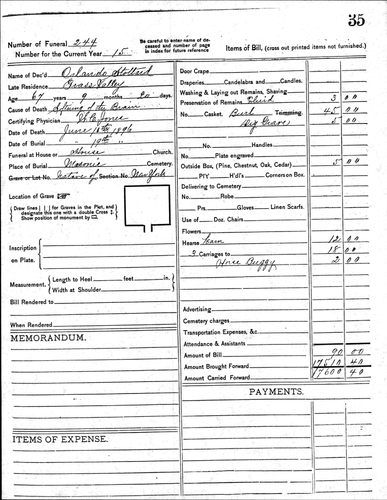 35
Number of Funeral 244
Number for the Current Year 15
Be careful to enter name of de-
ceased and number of page
in index for future reference
Items of Bill, (cross out printed items not furnished.)
Name of Dec'd Orlando
Late Residence Grass Valley
Age 67 years 9 months 20 days.
Cause of Death of the Brain
Certifying Physician Jones
Date of Death June 18th 1896
Date of Burial " 19th "
Funeral at House or House Church.
Place of Burial Masonic Cemetery.
Grave or Lot No. Native of Section No. New York
Location of Grave
Draw lines for Graves in the Plot, and
designate this one with a double Cross
Show position of monument by
Inscription
on Plate.
Measurement. Length to Heel feet in.
Width at Shoulder "
Bill Rendered to
When Rendered
MEMORANDUM.
ITEMS OF EXPENSE.
Door Crape
Draperies Candelabra and Candles.
Washing & Laying out Remains, Shaving
Preservation of Remains Fluid 3 00
No. Casket, Burl Trimming 45 00
Dig Grave 5 00
No. Handles
No. Plate engraved
Outside Box, (Pine, Chestnut, Oak, Cedar) 5 00
PIY H'dl's Corners on Box.
Delivering to Cemetery
No. Robe
Prs. Gloves Linen Scarfs.
Use of Doz. Chairs
Flowers
Hearse Team 12 00
3 Carriages to 18 00
Horse Buggy 2 00
Advertising
Cemetery charges
Transportation Expenses, &c
Attendance & Assistants
Amount of Bill 90 00
Amount Brought Forward 17510 40
Amount Carried Forward 17600 40
PAYMENTS.